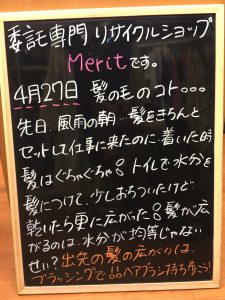 委託専門リサイクルショップ
Meritです。
4月27日 髪のものコト。。。
先日、風雨の朝…髪をきちんと
セットして仕事に来たのに…着いた時
髪はぐちゃぐちゃ トイレで水分を
髪につけて、少しおちついたけど
乾いたら更に広がった 髪が広
がるのは、水分が均等じゃない
せい?出先の髪の広がりは、
ブラッシングで ヘアブラシ持ち歩こう!